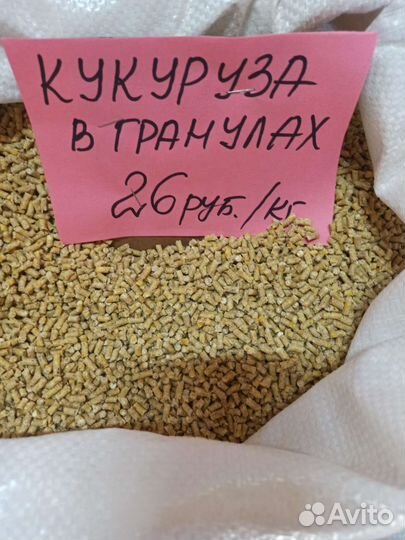 КУКУРУЗА
В ГРАНУЛАХ
26 РУБ./КГ
Avito